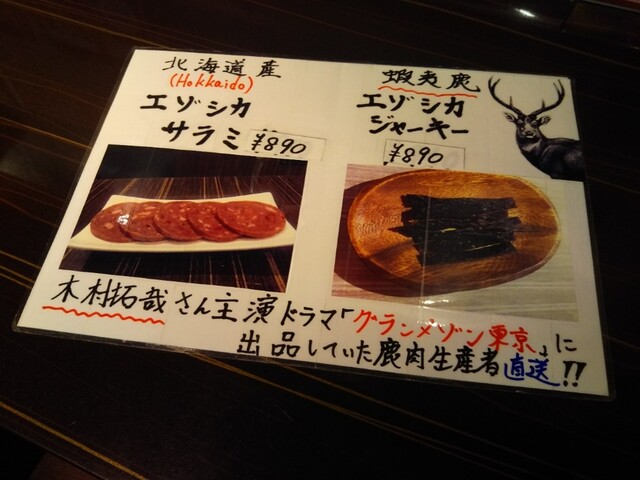 北海道産
(Hokkaido)
エゾシカ
サラミ
¥890
蝦夷鹿
エゾシカ
ジャーキー
¥890
木村拓哉さん主演ドラマ「グランメゾン東京」に
出品していた鹿肉生産者直送!!